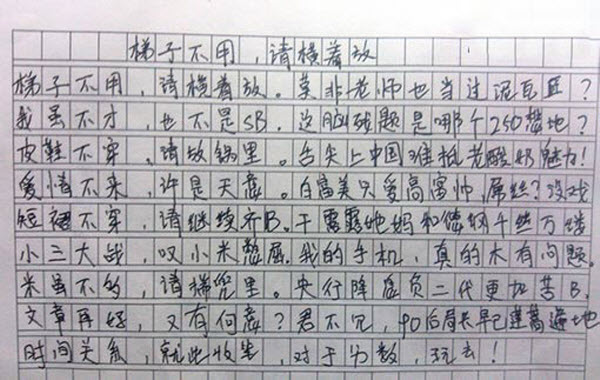 梯子不用，请横着放
梯子不用，请横着放。莫非老师也当过泥瓦匠？
我虽不才，也不是SB。这脑残题是哪个250想地？
皮鞋不穿，请放锅里。舌尖上中国难抵老酸奶魅力！
爱情不来，许是天意。白富美只爱高富帅，屌丝？没戏
短裙不穿，请继续齐B。干露露她妈和 千丝万缕
小三大战，叹小米憋屈。我的手机，真的木有问题。
米虽不多，请揣兜里。央行降息负二代更加苦B。
文章再好，又有何意？君不见，90后局长早已蓬蒿遍地
时间关系，就此收笔，对于分数，玩去！